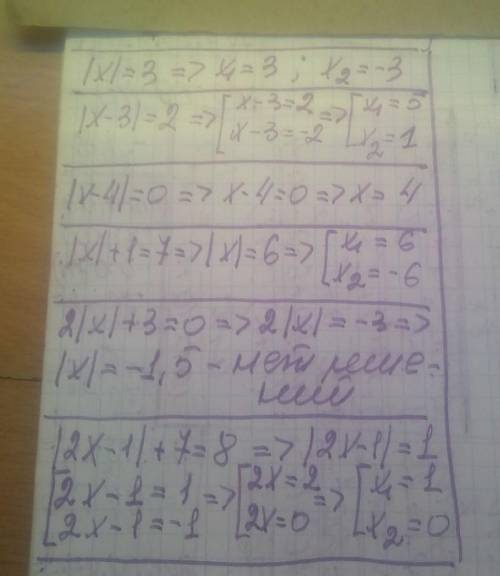 |x|=3 => x₁=3 ; x₂=-3
|x-3|=2 => [x-3=2 => [x₁=5
x-3=-2 x₂=1
|x-4|=0 => x-4=0 => x=4
|x|+1=7 => |x|=6 => [x₁=6
x₂=-6
2|x|+3=0 => 2|x|=-3 =>
|x|=-1,5 - нет реше-
ний
|2x-1|+7=8 => |2x-1|=1
[2x-1=1 => [2x=2 => [x₁=1
2x-1=-1 2x=0 x₂=0